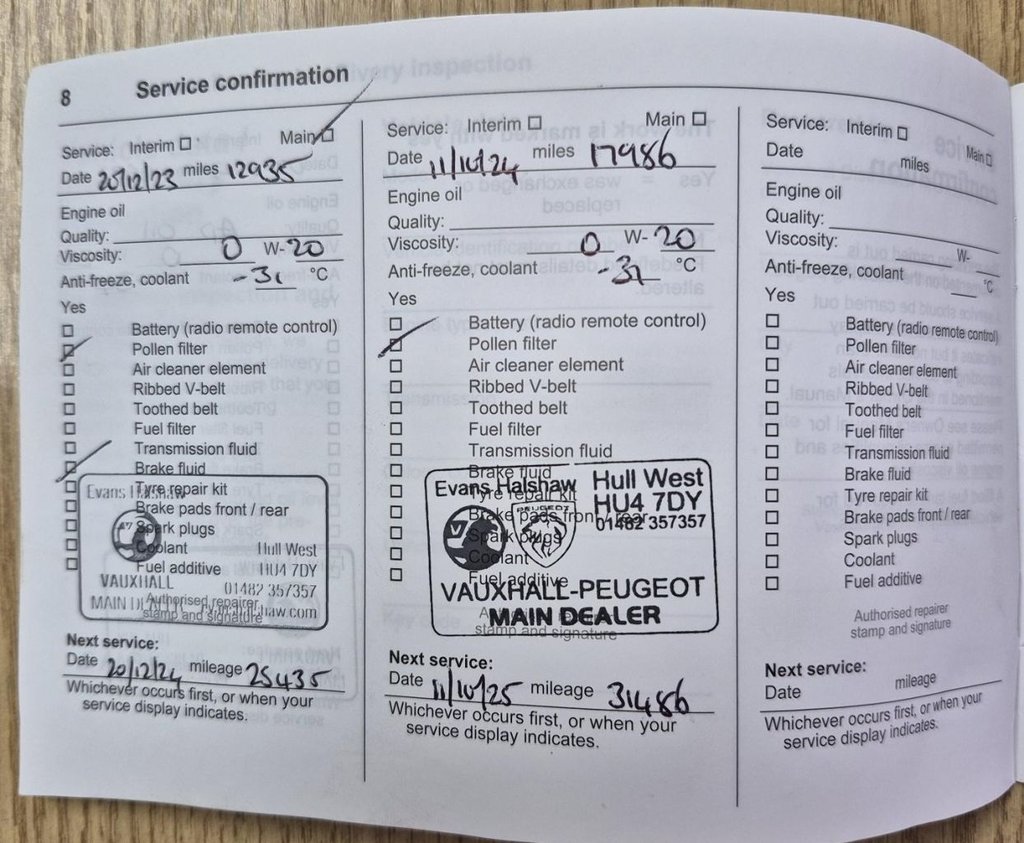 8 Service confirmation
Service: Interim ☐ Main ☑
Date 20/12/23 miles 12935
Engine oil
Quality:
Viscosity: 0 W- 20
Anti-freeze, coolant -31 °C
Yes
☐ Battery (radio remote control)
☑ Pollen filter
☐ Air cleaner element
☐ Ribbed V-belt
☐ Toothed belt
☐ Fuel filter
☐ Transmission fluid
☑ Brake fluid
☐ Tyre repair kit
☐ Brake pads front / rear
☐ Spark plugs
☐ Coolant
☐ Fuel additive
Evans Halshaw
Hull West
HU4 7DY
VAUXHALL 01482 357357
MAIN
Authorised repairer
stamp and signature
Next service:
Date 20/12/24 mileage 25435
Whichever occurs first, or when your
service display indicates.
Service: Interim ☐ Main ☐
Date 11/10/24 miles 17986
Engine oil
Quality:
Viscosity: 0 W- 20
Anti-freeze, coolant -31 °C
Yes
☐ Battery (radio remote control)
☑ Pollen filter
☐ Air cleaner element
☐ Ribbed V-belt
☐ Toothed belt
☐ Fuel filter
☐ Transmission fluid
☐ Brake fluid
☐ Tyre repair kit
☐ Brake pads front / rear
☐ Spark plugs
☐ Coolant
☐ Fuel additive
Evans Halshaw Hull West
HU4 7DY
PEUGEOT 01482 357357
VAUXHALL-PEUGEOT
MAIN DEALER
stamp and signature
Next service:
Date 11/10/25 mileage 31486
Whichever occurs first, or when your
service display indicates.
Service: Interim ☐ Main ☐
Date miles
Engine oil
Quality:
Viscosity: W-
Anti-freeze, coolant °C
Yes
☐ Battery (radio remote control)
☐ Pollen filter
☐ Air cleaner element
☐ Ribbed V-belt
☐ Toothed belt
☐ Fuel filter
☐ Transmission fluid
☐ Brake fluid
☐ Tyre repair kit
☐ Brake pads front / rear
☐ Spark plugs
☐ Coolant
☐ Fuel additive
Authorised repairer
stamp and signature
Next service:
Date mileage
Whichever occurs first, or when your
service display indicates.